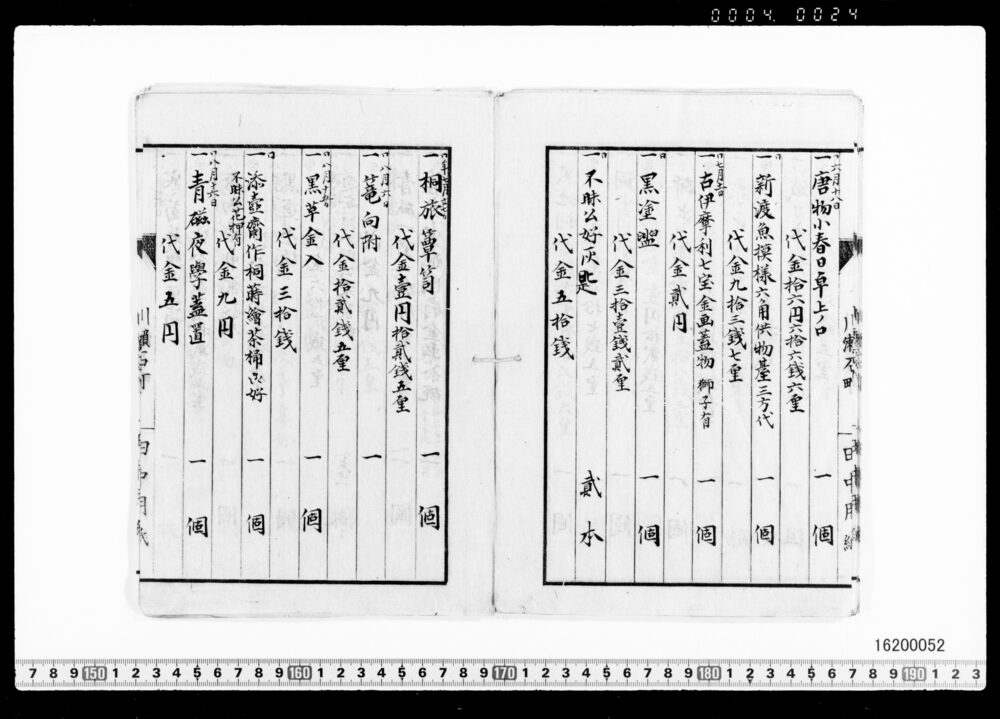 0004. 0024
六月十八日
一 唐物小春日卓上ノ口 一 個
代金拾六円六拾六銭六厘
一 新渡魚模様六角供物基三方代 一 個
代金九拾三銭七厘
七月
一 古伊摩利七宝金画蓋物 獅子有 一 個
代金貳円
一 黒塗盥 一 個
代金三拾壹銭貳厘
一 不昧公好灰匙 貳 本
代金五拾銭
一 桐旅簞笥 一 個
代金壹円拾貳銭五厘
八月六日
一 篭向附 一
代金拾貳銭五厘
八月十五日
一 黒草金入 一 個
代金三拾銭
一 添壺齋作桐蒔繪茶桶 公好 一 個
不昧公花押有
代金九円
八月十六日
一 青磁夜學蓋置 一 個
代金五円
16200052
7 8 9 150 1 2 3 4 5 6 7 8 9 160 1 2 3 4 5 6 7 8 9 170 1 2 3 4 5 6 7 8 9 180 1 2 3 4 5 6 7 8 9 190 1 2 3